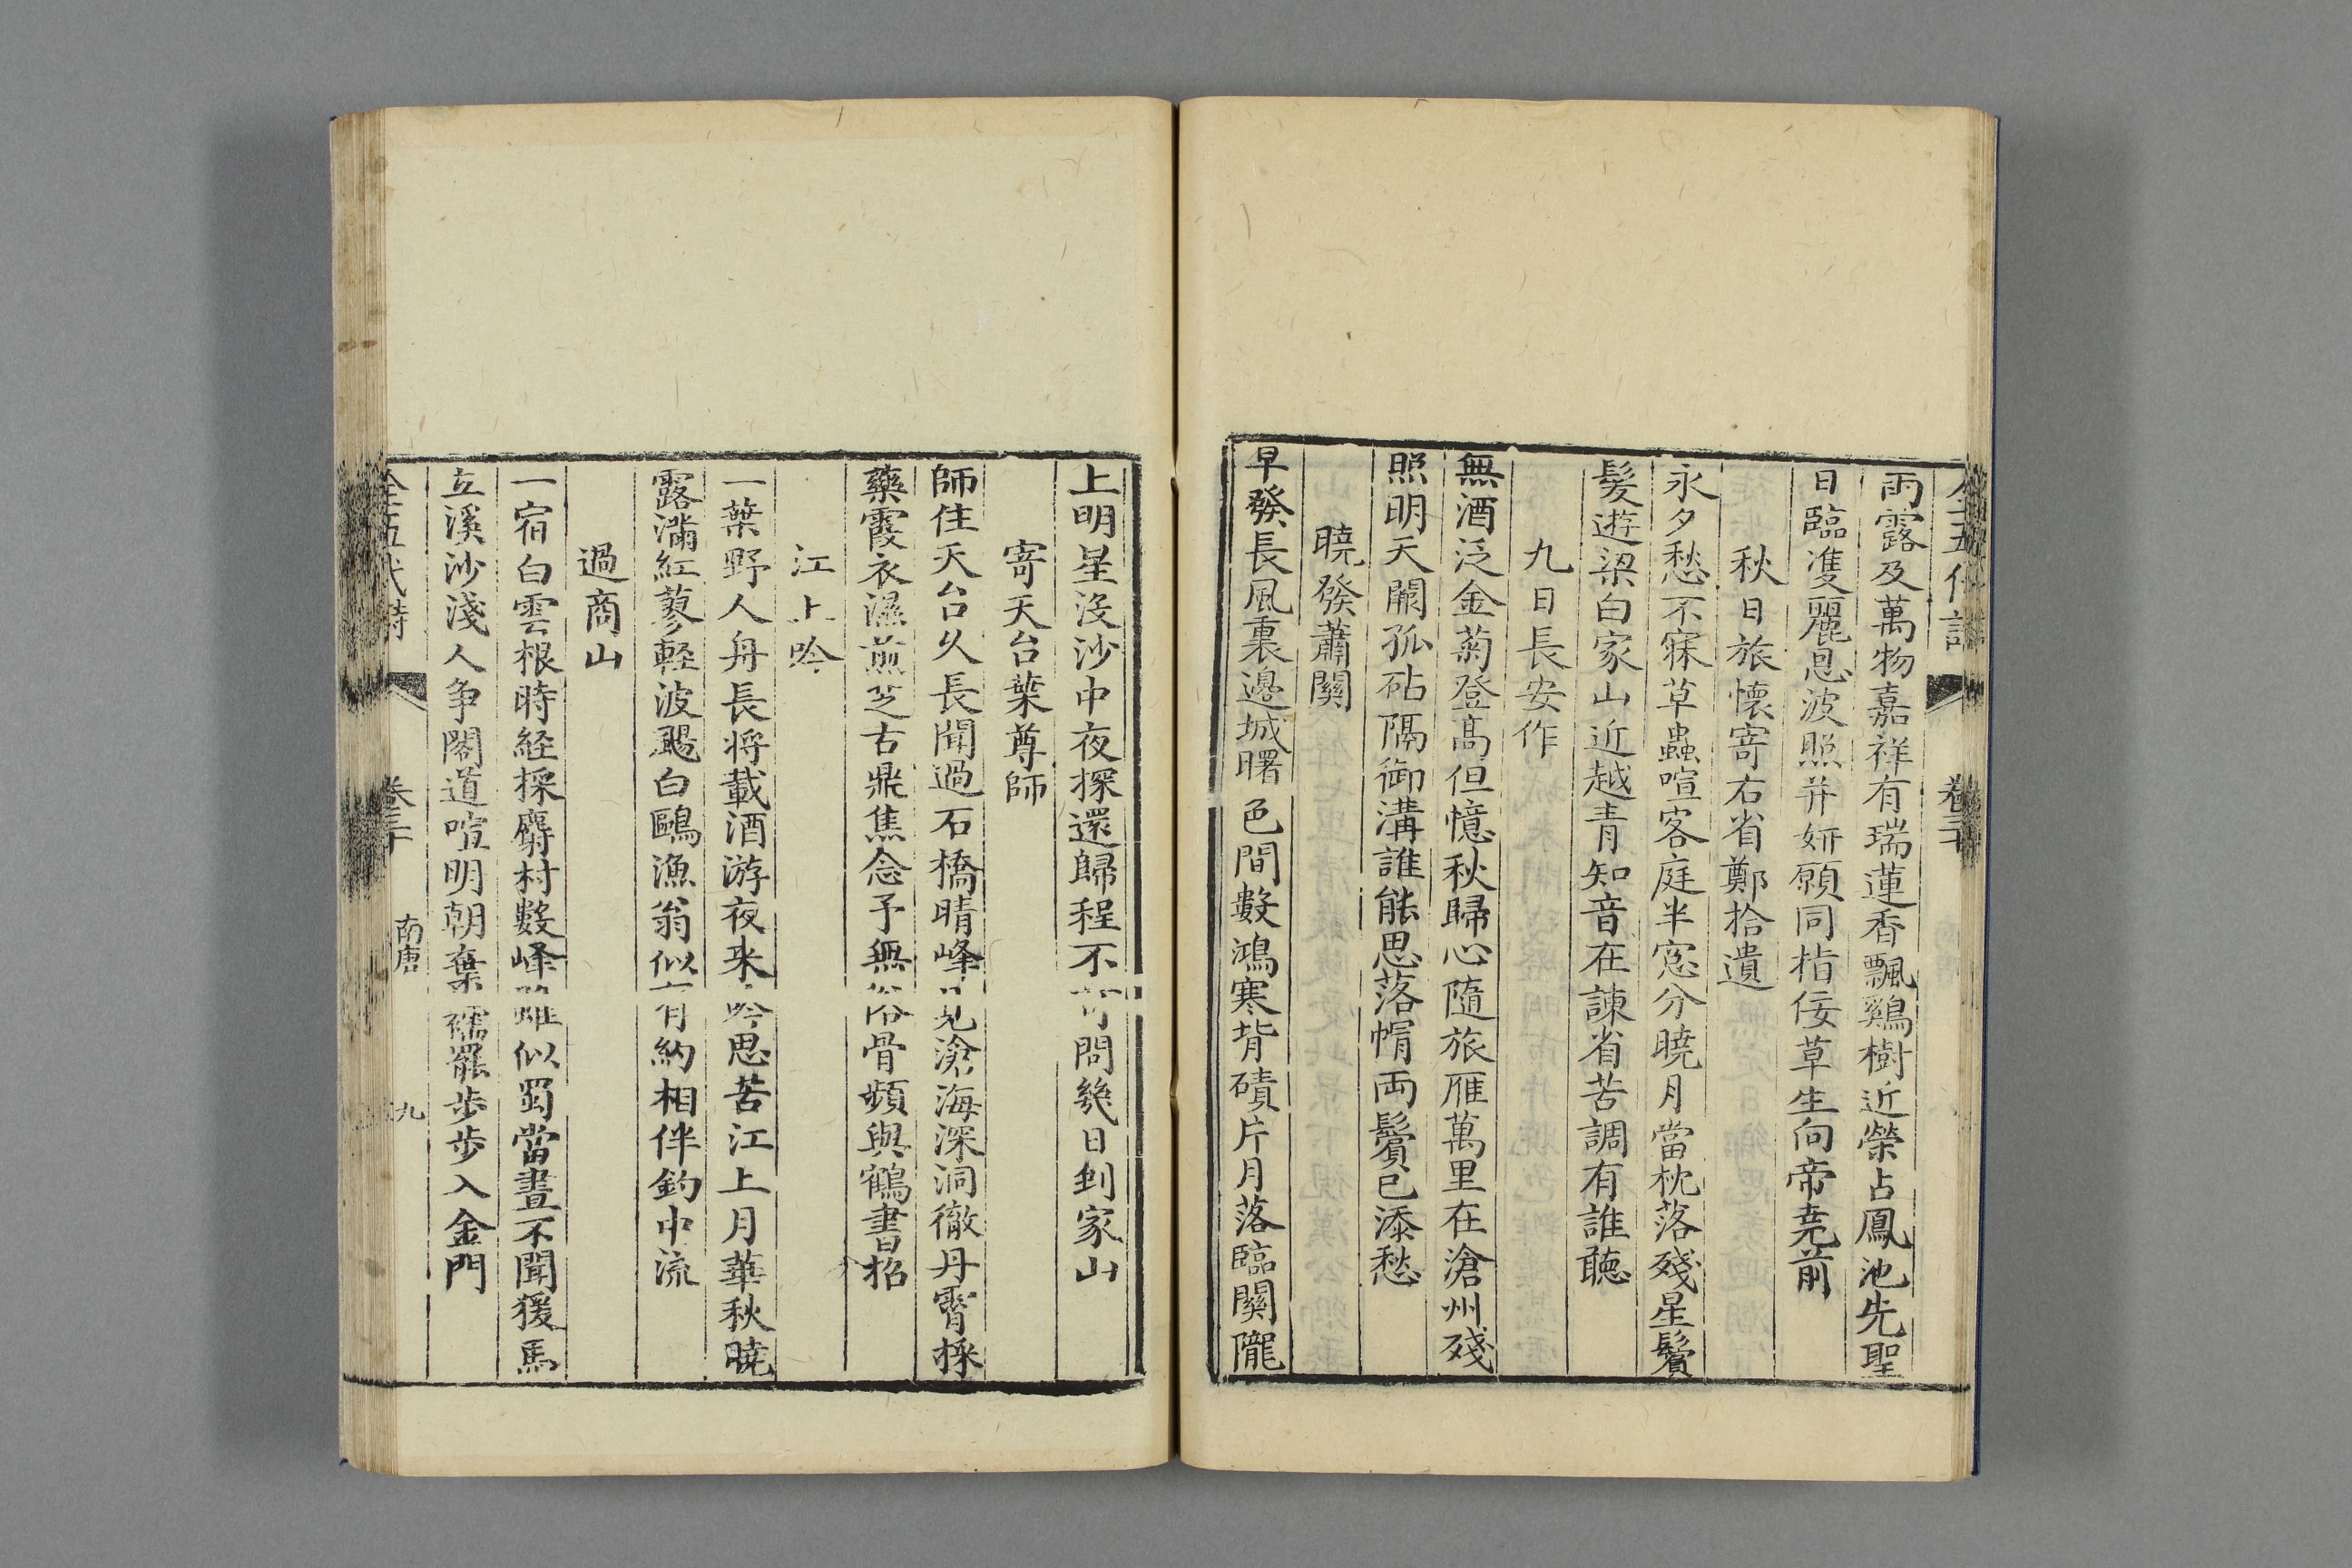 全五代詩 卷三十
雨露及萬物嘉祥有瑞蓮香飄鷄樹近榮占鳳池先聖
日臨雙麗恩波照并妍願同指佞草生向帝堯前
秋日旅懷寄右省鄭拾遺
永夕愁不寐草蟲喧客庭半窓分曉月當枕落殘星鬢
髮遊梁白家山近越青知音在諫省苦調有誰聽
九日長安作
無酒泛金菊登高但憶秋歸心隨旅雁萬里在滄州殘
照明天闕孤砧隔御溝誰能思落帽兩鬢已添愁
曉發蕭關
早發長風裏邊城曙色間數鴻寒背磧片月落臨關隴
上明星沒沙中夜探還歸程不可問幾日到家山
寄天台葉尊師
師住天台久長聞過石橋晴峰見滄海深洞徹丹霄採
藥霞衣濕煎芝古鼎焦念予無俗骨頻與鶴書招
江上吟
一葉野人舟長將載酒游夜來吟思苦江上月華秋曉
露滿紅蓼輕波颺白鷗漁翁似有約相伴釣中流
過商山
一宿白雲根時經採麝村數峰雖似蜀當晝不聞猨馬
立溪沙淺人争閣道喧明朝棄襦罷步步入金門
全五代詩 卷三十 南唐 九